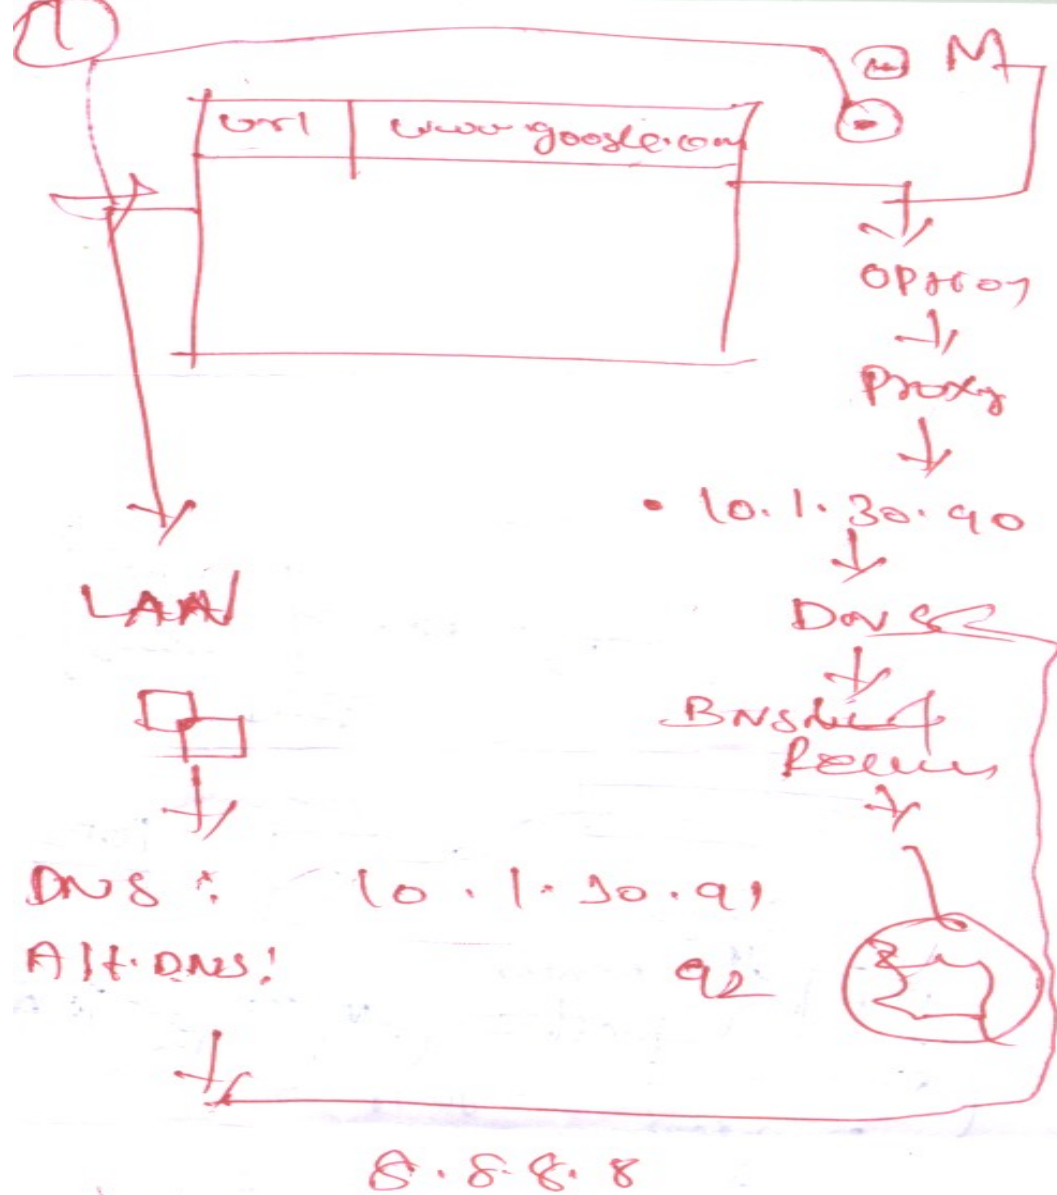 1
M
url www.google.com
option
Proxy
• 10.1.30.90
LAN
DNS
DNS : 10.1.30.91
Alt.DNS: 92
8.8.8.8